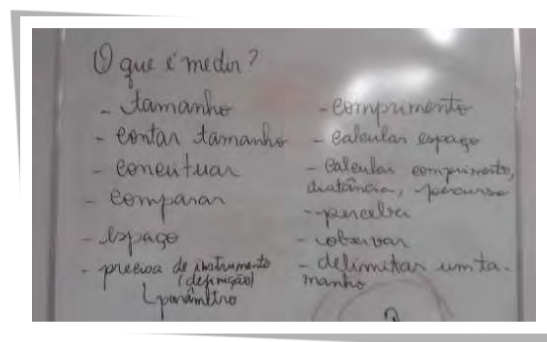 O que é medir?
- tamanho
- contar tamanho
- conceituar
- comparar
- espaço
- precisa de instrumento
(definição)
parâmetro
- comprimento
- calcular espaço
- calcular comprimento,
distância, percurso
- perceber
- observar
- delimitar um ta-
manho